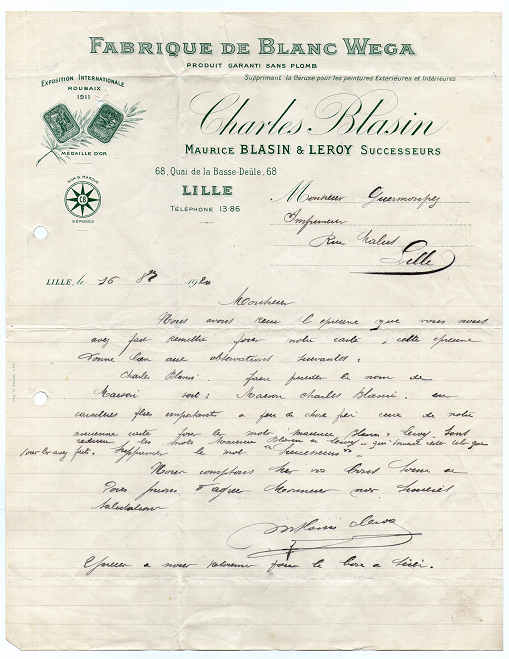 FABRIQUE DE BLANC WEGA
PRODUIT GARANTI SANS PLOMB
Supprimant la Céruse pour les peintures Extérieures et Intérieures
EXPOSITION INTERNATIONALE
ROUBAIX
1911
MÉDAILLE D'OR
Charles Blasin
MAURICE BLASIN & LEROY SUCCESSEURS
68, Quai de la Basse-Deûle, 68
LILLE
TÉLÉPHONE 13-86
NOM & MARQUE
CB
DÉPOSÉS
Monsieur
Imprimeur
Rue
Lille
LILLE, le 16 8bre 1920
Monsieur
Nous avons reçu l'épreuve que vous nous
avez fait remettre pour notre carte, cette épreuve
donne lieu aux observations suivantes :
Charles Blasin. faire précéder le nom de
Maison soit : Maison Charles Blasin. en
caractères plus importants à peu de chose près ceux de notre
ancienne carte pour les mots Maurice Blasin & Leroy. Sans
les mots Maurice Blasin et Leroy qui
pour les avez fait. Supprimer le mot "Successeurs"
Nous comptons sur vos bons soins et
vous prions d'agréer Monsieur nos sincères
salutations
Leroy
Épreuve à nous retourner pour le bon à tirer.